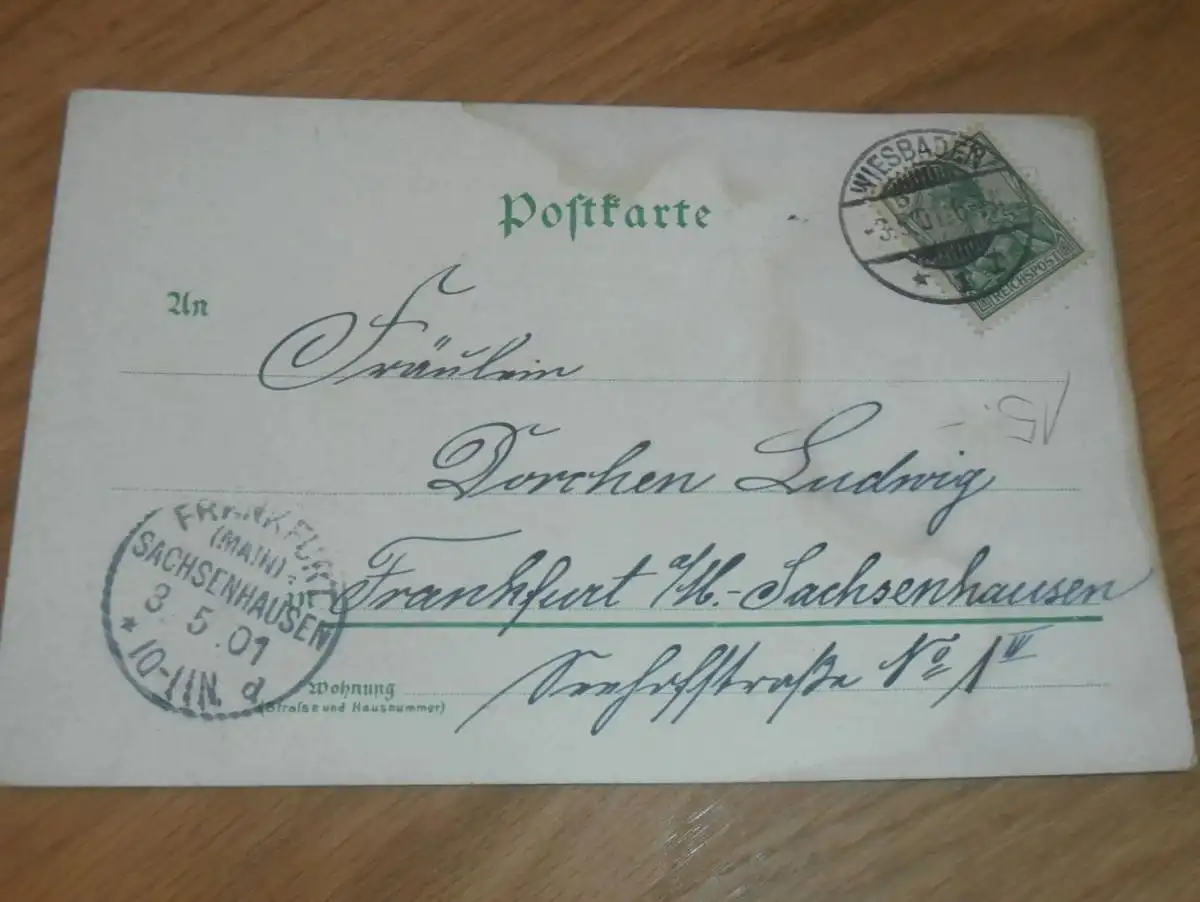 Postkarte
WIESBADEN
-3.5.01. 6-
* 1 r
REICHSPOST
An
Fräulein
Dorchen Ludwig
15.-
Frankfurt a/M.-Sachsenhausen
Seehofstraße No 1 III
Wohnung
(Straße und Hausnummer)
FRANKFURT
(MAIN)-
SACHSENHAUSEN
3.5.01
* 10-11N. d